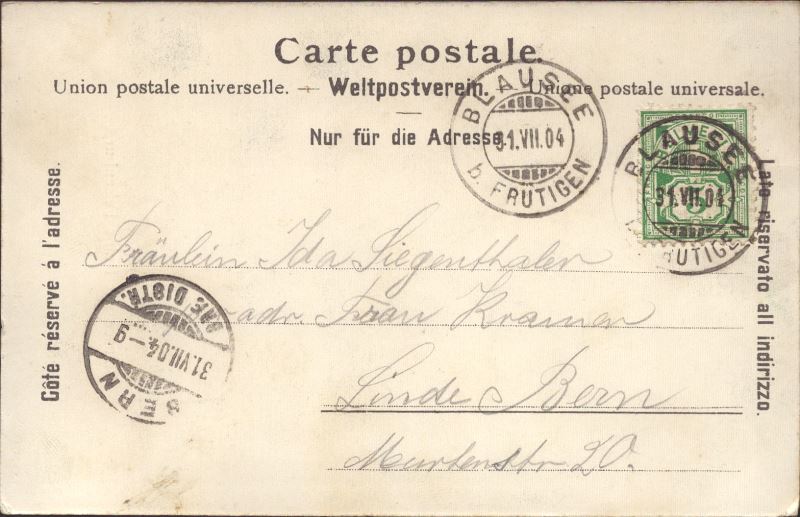 Carte postale.
Union postale universelle. — Weltpostverein. — Unione postale universale.
Nur für die Adresse
Côté réservé à l'adresse.
Lato riservato all indirizzo.
BLAUSEE
31.VII.04
b. FRUTIGEN
BLAUSEE
31.VII.04
FRUTIGEN
Fräulein Ida Siegenthaler
adr. Frau Kramer
Linde Bern
Murtenstr 20.
BERN
31.VII.04–9
DISTR.